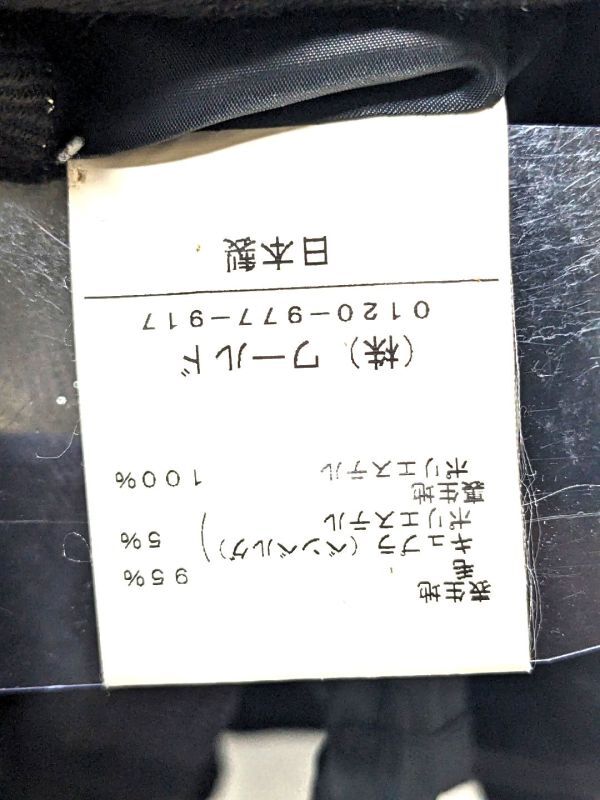 表生地
毛 95%
キュプラ(ベンベルグ) 5%
ポリエステル
裏生地
ポリエステル 100%
(株)ワールド
0120-977-917
日本製